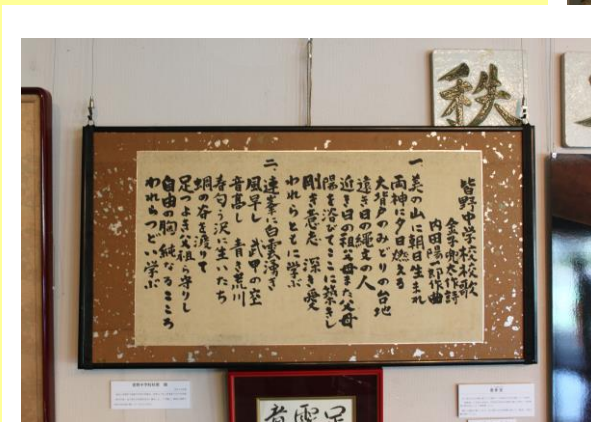 皆野中学校校歌
金子兜太作詩
内田陽一郎作曲
一、美の山に朝日生まれ
両神に夕日燃える
大背戸のみどりの台地
遠き日の縄文の人
近き日の祖父母また父母
陽を浴びてここに築きし
剛き意志 深き愛
われらともに学ぶ
二、連峯に白雲湧き
風早し 武甲の空
音高し 青き荒川
春匂う沢に生いたち
蜩の谷を渡りて
足つよき父祖ら守りし
自由の胸 純なるこころ
われらつどい学ぶ
秩